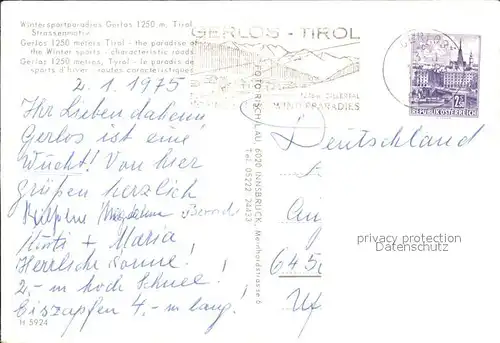 Wintersportparadies Gerlos 1250 m. Tirol
Strassenmotiv
Gerlos 1250 meters Tirol - the paradise of
the Winter sports - characteristic roads
Gerlos 1250 metres, Tyrol - le paradis de
sports d'hiver - routes caractéristiques
GERLOS - TIROL
WINTERPARADIES
GERLOS
2.50
REPUBLIK ÖSTERREICH
2.1.1975
Ihr Lieben daheim
Gerlos ist eine
Wucht! Von hier
grüßen herzlich
Magdalena Bernd
+ Maria,
Herrliche Sonne!
2,- m hoch Schnee!
Eiszapfen 4,- m lang!
H 5924
FOTO RISCHLAU, 6020 INNSBRUCK, Meinhardstrasse 6
Tel. 05222 24433
Deutschland
645
privacy protection
Datenschutz